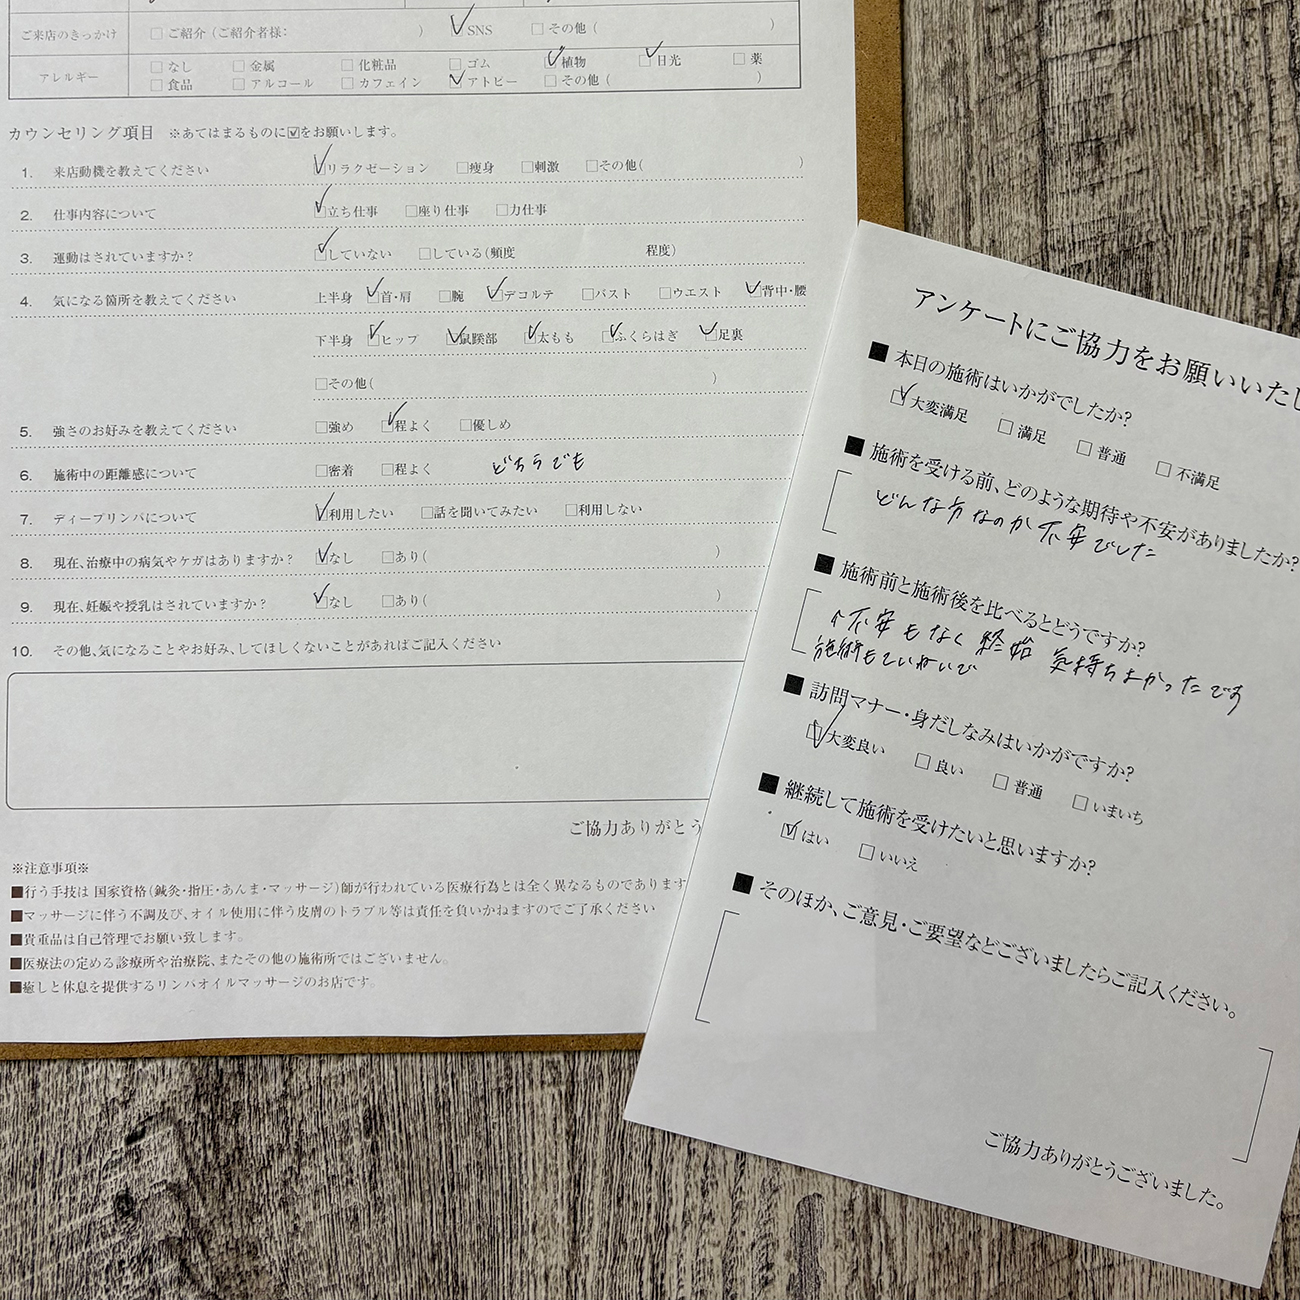 ご来店のきっかけ □ご紹介（ご紹介者様: ） ☑SNS □その他（ ）
アレルギー □なし □金属 □化粧品 □ゴム ☑植物 ☑日光 □薬
□食品 □アルコール □カフェイン ☑アトピー □その他（ ）
カウンセリング項目 ※あてはまるものに☑をお願いします。
1. 来店動機を教えてください ☑リラクゼーション □痩身 □刺激 □その他( )
2. 仕事内容について ☑立ち仕事 □座り仕事 □力仕事
3. 運動はされていますか？ ☑していない □している(頻度 程度)
4. 気になる箇所を教えてください 上半身 ☑首・肩 □腕 ☑デコルテ □バスト □ウエスト ☑背中・腰
下半身 ☑ヒップ ☑鼠蹊部 ☑太もも ☑ふくらはぎ ☑足裏
□その他( )
5. 強さのお好みを教えてください □強め ☑程よく □優しめ
6. 施術中の距離感について □密着 □程よく どちらでも
7. ディープリンパについて ☑利用したい □話を聞いてみたい □利用しない
8. 現在、治療中の病気やケガはありますか？ ☑なし □あり( )
9. 現在、妊娠や授乳はされていますか？ ☑なし □あり( )
10. その他、気になることやお好み、してほしくないことがあればご記入ください
ご協力ありがとう
※注意事項※
■行う手技は 国家資格(鍼灸・指圧・あんま・マッサージ)師が行われている医療行為とは全く異なるものであります
■マッサージに伴う不調及び、オイル使用に伴う皮膚のトラブル等は責任を負いかねますのでご了承ください
■貴重品は自己管理でお願い致します。
■医療法の定める診療所や治療院、またその他の施術所ではございません。
■癒しと休息を提供するリンパオイルマッサージのお店です。
アンケートにご協力をお願いいたし
■ 本日の施術はいかがでしたか？
☑大変満足 □満足 □普通 □不満足
■ 施術を受ける前、どのような期待や不安がありましたか？
どんな方なのか不安でした
■ 施術前と施術後を比べるとどうですか？
↑不安もなく終始 気持ちよかったです
施術もていねいで
■ 訪問マナー・身だしなみはいかがですか？
☑大変良い □良い □普通 □いまいち
■ 継続して施術を受けたいと思いますか？
☑はい □いいえ
■ そのほか、ご意見・ご要望などございましたらご記入ください。
ご協力ありがとうございました。